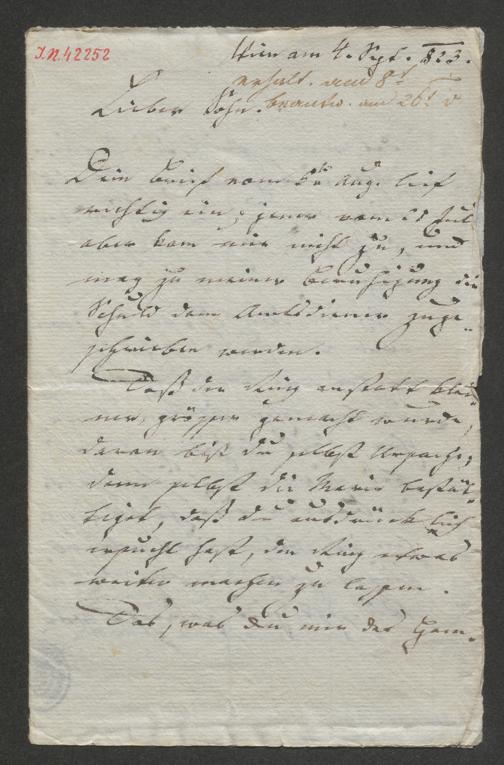 I.N. 42252
Wien am 4. Sept. 823.
erhalt. am 8t
Lieber Sohn. beantw. am 26t d
Dein Brief vom 5tn Aug. lief
richtig ein; jener vom 28 Jul
aber kam mir nicht zu, und
mag zu meiner Beruhigung die
Schuld dem Amtsdiener zuge-
schrieben werden.
Daß der Ring anstatt klei-
ner, größer gemacht wurde,
daran bist du selbst Ursache,
denn selbst die Marie bestät-
tiget, daß du ausdrücklich
ersucht hast, den Ring etwas
weiter machen zu lassen.
Das, was du mir der